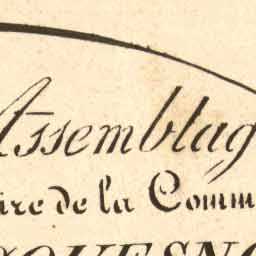 Assemblag
ire de la Comm
QUESN